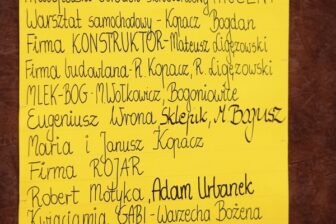 Warsztat samochodowy - Kopacz Bogdan
Firma KONSTRUKTOR - Mateusz Ligęzowski
Firma budowlana - R. Kopacz, R. Ligęzowski
MLEK-BOG - M Wołkowicz, Bogoniowice
Eugeniusz Wrona, Sklepik, M Bogusz
Maria i Janusz Kopacz
Firma ROJAR
Robert Motyka, Adam Urbanek
Kwiaciarnia GABI - Warzecha Bożena